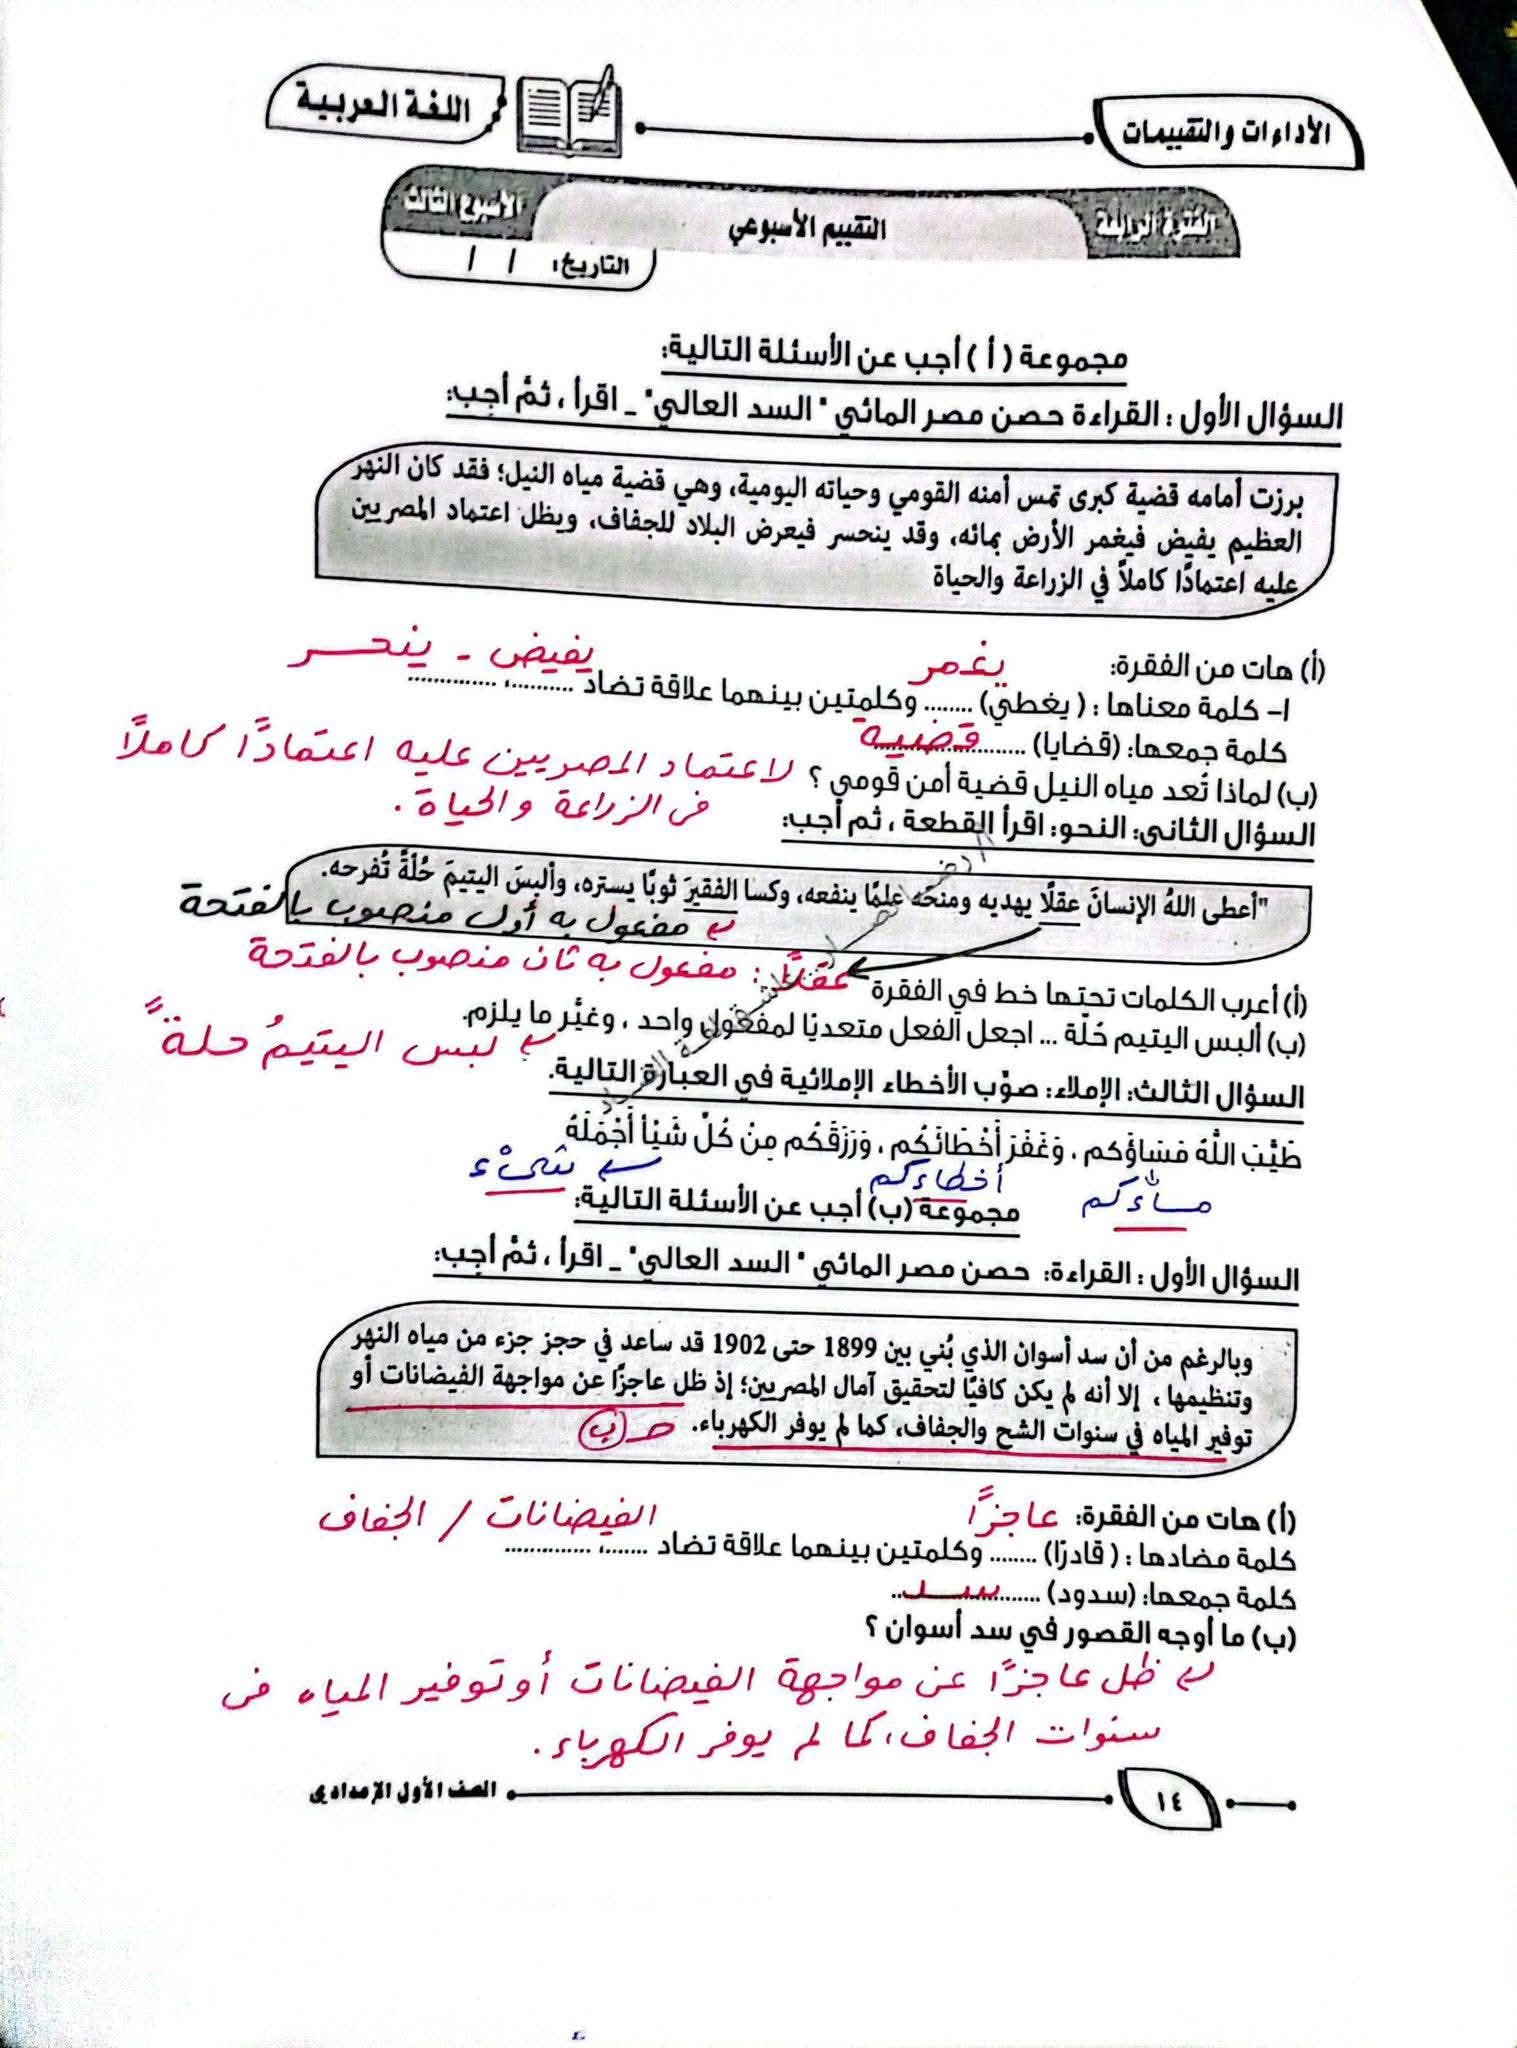 الأداءات والتقييمات
اللغة العربية
الفترة الرابعة
التقييم الأسبوعي
الأسبوع الثالث
التاريخ: / /
مجموعة ( أ ) أجب عن الأسئلة التالية:
السؤال الأول : القراءة حصن مصر المائي " السد العالي" _ اقرأ ، ثمَّ أجب:
برزت أمامه قضية كبرى تمس أمنه القومي وحياته اليومية، وهي قضية مياه النيل؛ فقد كان النهر
العظيم يفيض فيغمر الأرض بمائه، وقد ينحسر فيعرض البلاد للجفاف، ويظل اعتماد المصريين
عليه اعتمادًا كاملاً في الزراعة والحياة
(أ) هات من الفقرة: يغمر يفيض - ينحسر
١- كلمة معناها : ( يغطي) ........ وكلمتين بينهما علاقة تضاد ..........، ..............
كلمة جمعها: (قضايا) قضية
(ب) لماذا تُعد مياه النيل قضية أمن قومي ؟ لاعتماد المصريين عليه اعتمادًا كاملاً
فى الزراعة والحياة .
السؤال الثانى: النحو: اقرأ القطعة ، ثم أجب:
"أعطى اللهُ الإنسانَ عقلًا يهديه ومنحَه علمًا ينفعه، وكسا الفقيرَ ثوبًا يستره، وألبسَ اليتيمَ حُلةً تُفرحه.
مفعول به أول منصوب بالفتحة
عقلاً : مفعول به ثان منصوب بالفتحة
(أ) أعرب الكلمات تحتها خط في الفقرة
(ب) ألبس اليتيم حُلّة ... اجعل الفعل متعديًا لمفعول واحد ، وغيِّر ما يلزم.
لبس اليتيمُ حلةً
السؤال الثالث: الإملاء: صوِّب الأخطاء الإملائية في العبارة التالية.
طَيَّبَ اللَّهُ مَسَاؤَكم ، وَغَفَرَ أَخْطَائَكُم ، وَرَزَقَكُم مِنْ كُلِّ شَيْأ أَجْمَلَهُ
مساءكم أخطاءكم شىْء
مجموعة (ب) أجب عن الأسئلة التالية:
السؤال الأول : القراءة: حصن مصر المائي " السد العالي" _ اقرأ ، ثمَّ أجب:
وبالرغم من أن سد أسوان الذي بُني بين 1899 حتى 1902 قد ساعد في حجز جزء من مياه النهر
وتنظيمها ، إلا أنه لم يكن كافيًا لتحقيق آمال المصريين؛ إذ ظل عاجزًا عن مواجهة الفيضانات أو
توفير المياه في سنوات الشح والجفاف، كما لم يوفر الكهرباء. حـ ب
(أ) هات من الفقرة: عاجزًا الفيضانات / الجفاف
كلمة مضادها : ( قادرًا) ........ وكلمتين بينهما علاقة تضاد .......، ..............
كلمة جمعها: (سدود) سد
(ب) ما أوجه القصور في سد أسوان ؟
ظل عاجزًا عن مواجهة الفيضانات أو توفير المياه فى
سنوات الجفاف، كما لم يوفر الكهرباء .
١٤
الصف الأول الإعدادى